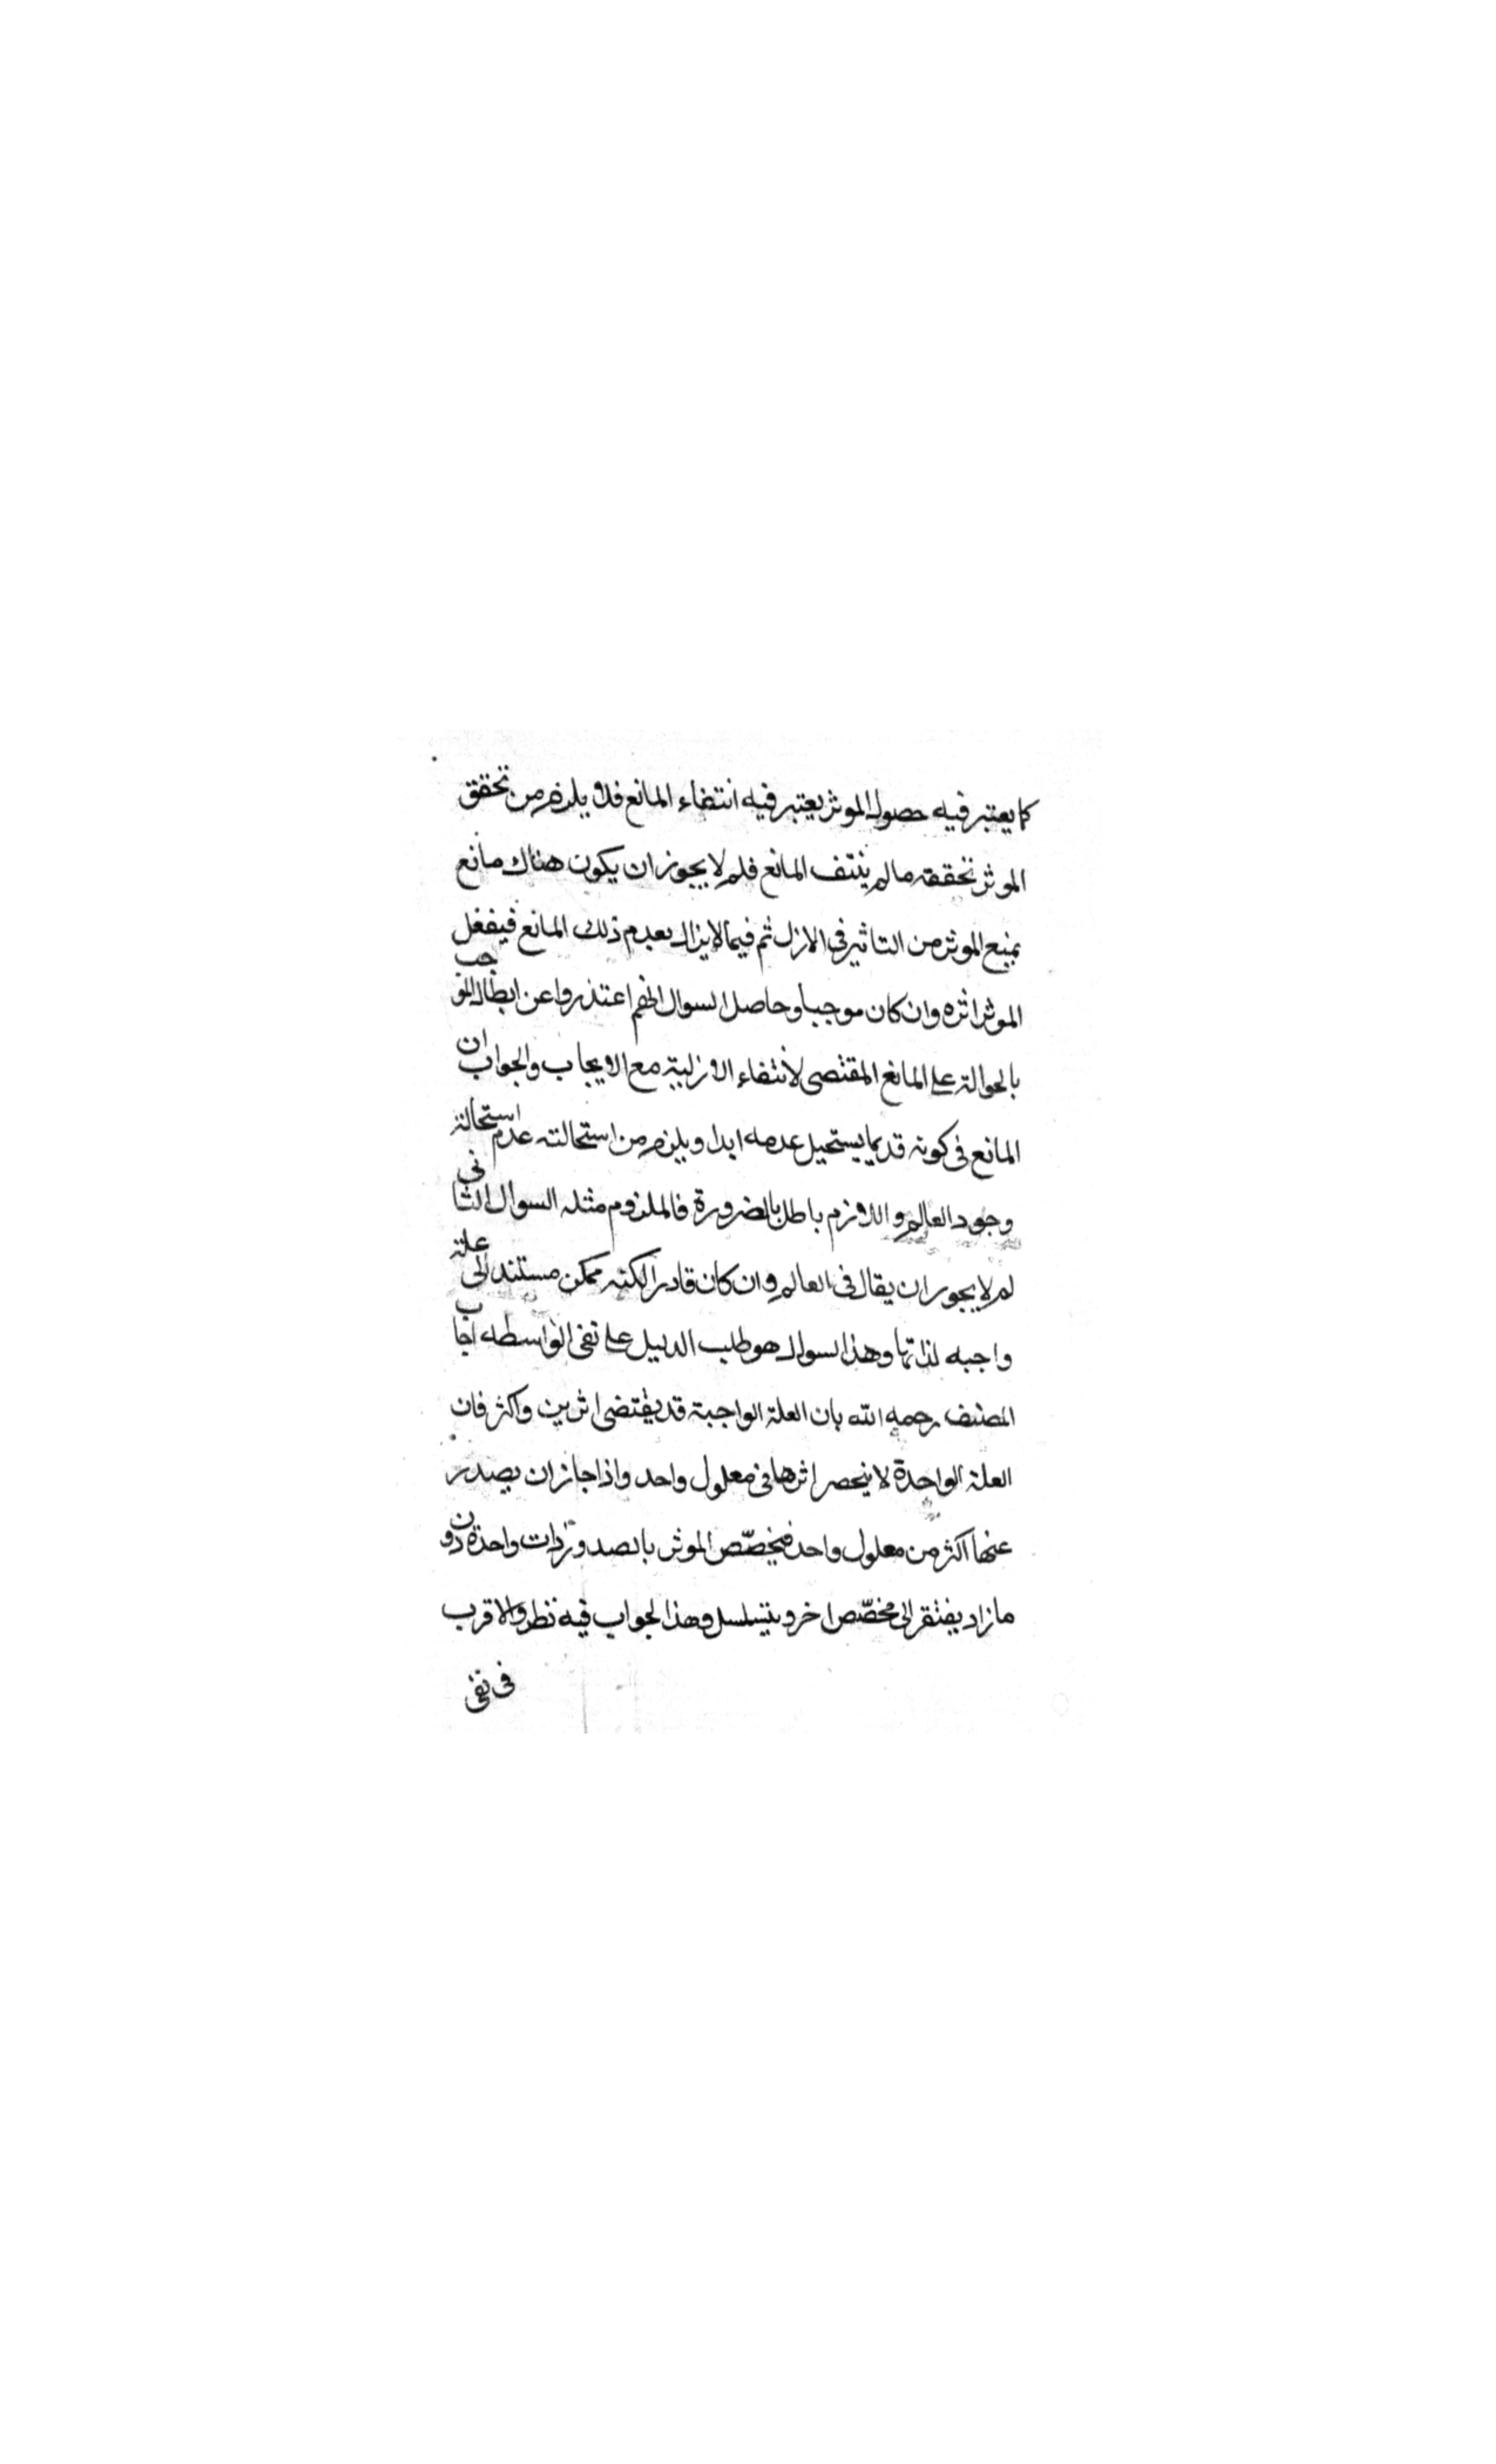 كما يعتبر فيه حصول الموثر يعتبر فيه انتفاء المانع فلا يلزم من تحقق
الموثر تحققه مالم ينتف المانع فلم لا يجوز ان يكون هناك مانع
يمنع الموثر من التاثير في الازل ثم فيما لا يزال يعدم ذلك المانع فيفعل
الموثر اثره وان كان موجبا وحاصل السوال انهم اعتذروا عن ابطال الموجب
بالحوالة على المانع المقتضى لانتفاء الازلية مع الايجاب والجواب ان
المانع في كونه قديما يستحيل عدمه ابدا ويلزم من استحالته عدم استحالة
وجود العالم واللازم باطل بالضرورة فالملزوم مثله السوال الثانى
لم لا يجوز ان يقال فى العالم وان كان قادرا لكنه ممكن مستند الى علة
واجبه لذاتها وهذا السوال هو طلب الدليل على نفى الواسطه اجاب
المصنف رحمه الله بان العلة الواجبة قد يقتضى اثرين واكثر فان
العلة الواحدة لا ينحصر اثرها فى معلول واحد واذا جاز ان يصدر
عنها اكثر من معلول واحد فيخصّص الموثر بالصدور ذات واحدة دون
مازاد يفتقر الى مخصّص اخر ويتسلسل وهذا الجواب فيه نظر والاقرب
فى نفى